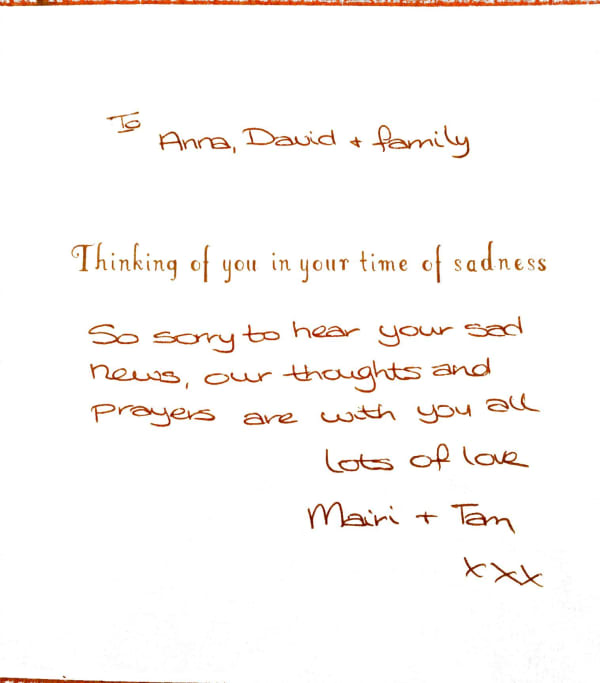 To
Anna, David + family
Thinking of you in your time of sadness
So sorry to hear your sad
news, our thoughts and
prayers are with you all
lots of love
Mairi + Tam
xxx